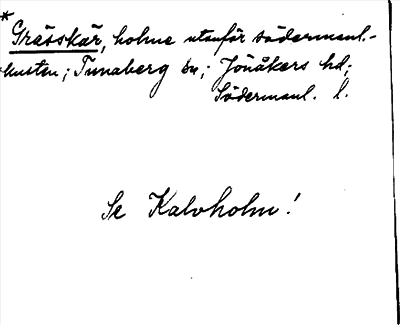 * Grässkär, holme utanför södermanl.-
kusten; Tunaberg sn; Jönåkers hd;
Södermanl. l.
Se Kalvholm!